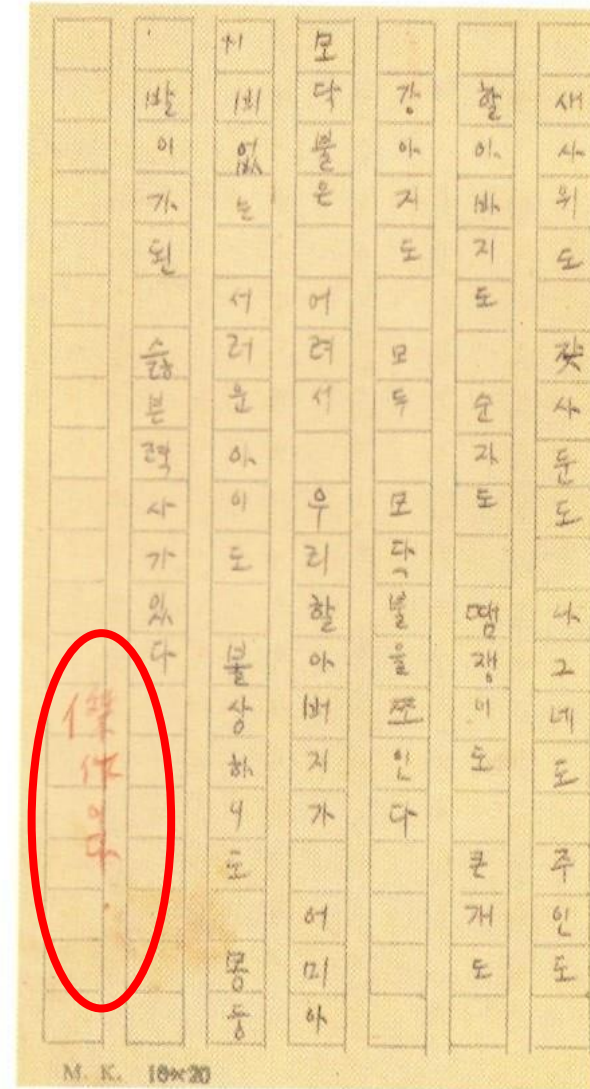 새사위도 갖사둔도 나그네도 주인도
할아바지도 손자도 땜쟁이도 큰개도
강아지도 모두 모닥불을 쪼인다
모닥불은 어려서 우리할아버지가 어미아
비없는 서러운아이도 불상하니도 몽둥
발이가된 슳븐력사가있다
傑作이다.
M. K. 18×20